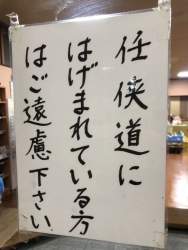 任侠道に
はげまれている方
はご遠慮下さい